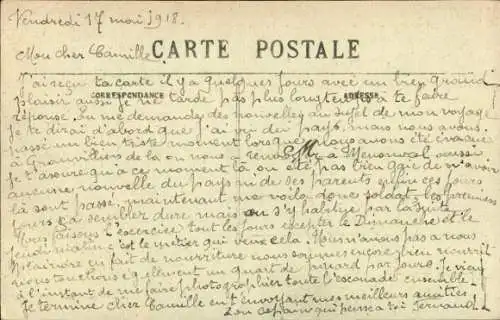 Vendredi 17 mai 1918.
Mon cher Camille
CARTE POSTALE
J'ai reçu ta carte il y a quelques jours avec un bien grand
CORRESPONDANCE ADRESSE
plaisir aussi je ne tarde pas plus longtemps à te faire
réponse. tu me demande des nouvelles au sujet de mon voyage
Je te dirai d'abord que j'ai du pays, mais nous avons
passé un bien triste moment lorsque nous avons été évacué
à Granvilliers de la on nous a à Menonval aussi
je t'assure qu'a ce moment la on été pas bien gai de n'avoir
aucune nouvelle du pays ni de ses parents enfin ces jours
là sont passé, maintenant me voila donc soldat, les premiers
jours ça sembler dure mais on s'y habitue par la suite
Nous faisons l'exercice tout les jours excepter le Dimanche et le
Jeudi matin c'est le métier qui veux cela. Nous n'avons pas a nous
plaindre en fait de nourriture nous sommes encore bien nourrit
nous touchons également un quart de pinard par jours. Je vien
à l'instant de me faire photographier toute l'escouade ensemble.
Je termine cher Camille en t'envoyant mes meilleurs amitiés
Ton copain qui pense a toi